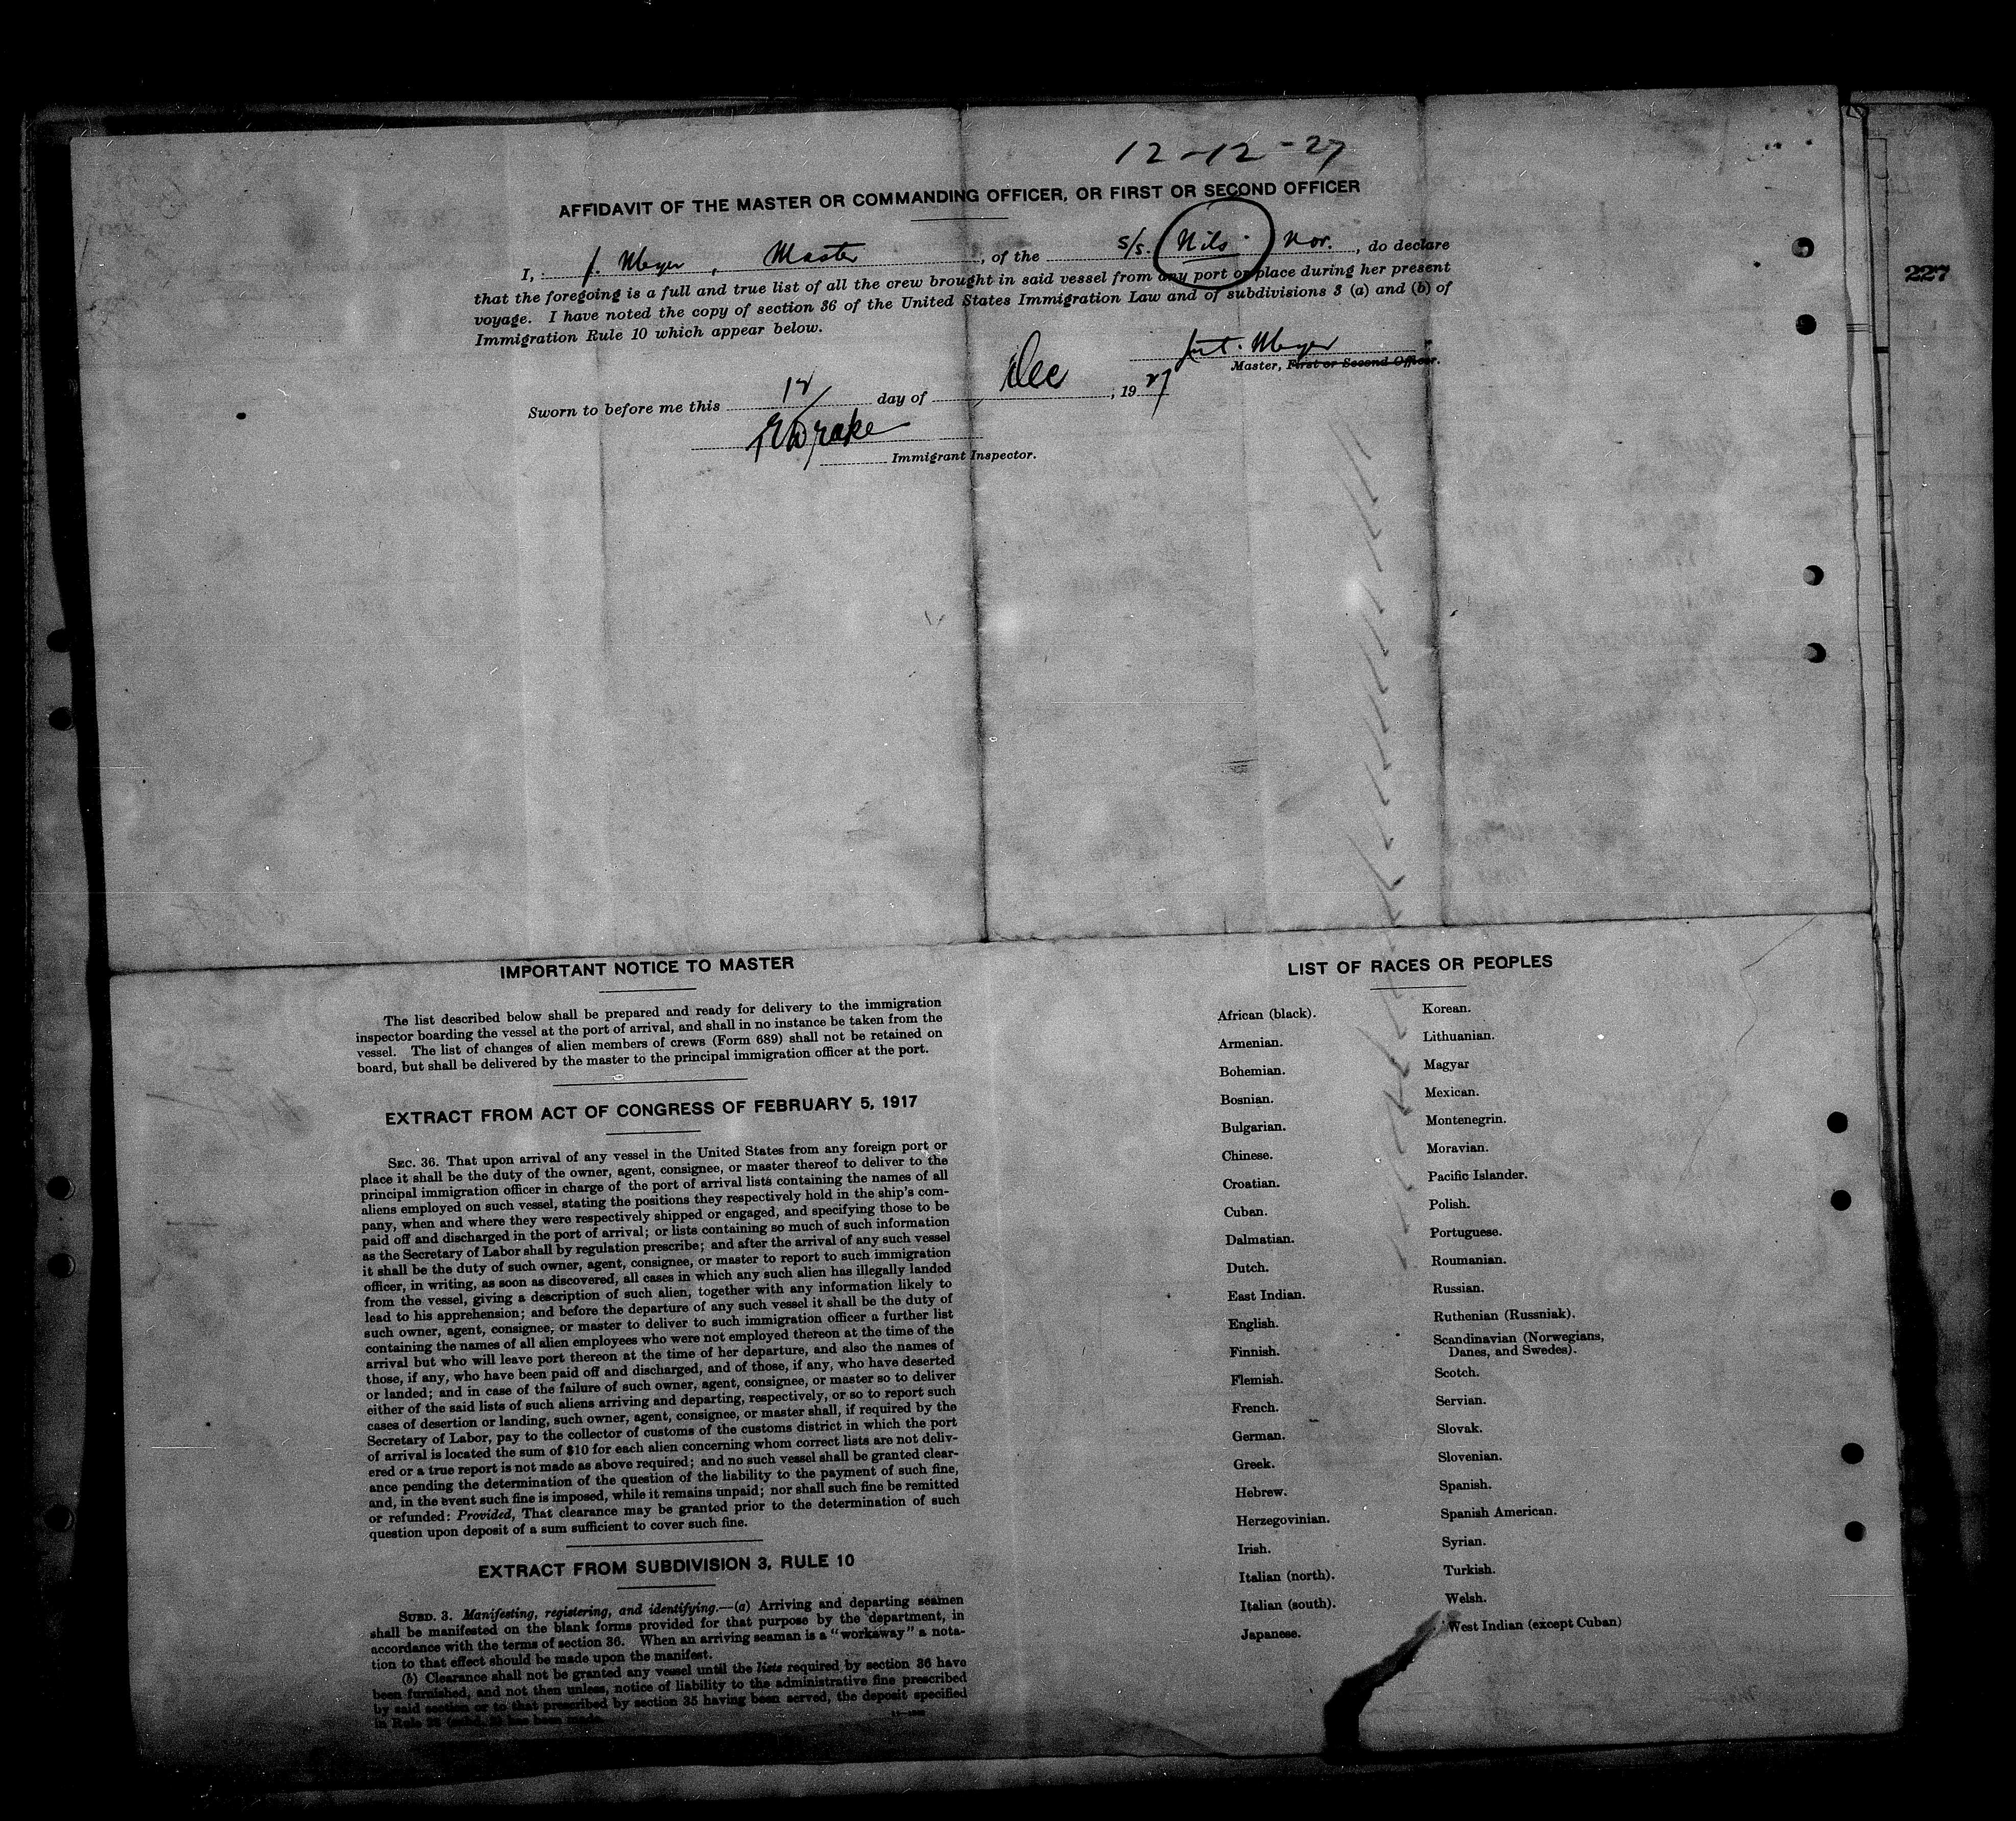 12-12-27
AFFIDAVIT OF THE MASTER OR COMMANDING OFFICER, OR FIRST OR SECOND OFFICER
I, J. Meyer, Master, of the S/S. Nils Nor., do declare
that the foregoing is a full and true list of all the crew brought in said vessel from any port or place during her present
voyage. I have noted the copy of section 36 of the United States Immigration Law and of subdivisions 3 (a) and (b) of
Immigration Rule 10 which appear below.
Meyer
Master, First or Second Officer.
Sworn to before me this 12 day of Dec, 1927
Drake
Immigrant Inspector.
227
IMPORTANT NOTICE TO MASTER
The list described below shall be prepared and ready for delivery to the immigration
inspector boarding the vessel at the port of arrival, and shall in no instance be taken from the
vessel. The list of changes of alien members of crews (Form 689) shall not be retained on
board, but shall be delivered by the master to the principal immigration officer at the port.
EXTRACT FROM ACT OF CONGRESS OF FEBRUARY 5, 1917
SEC. 36. That upon arrival of any vessel in the United States from any foreign port or
place it shall be the duty of the owner, agent, consignee, or master thereof to deliver to the
principal immigration officer in charge of the port of arrival lists containing the names of all
aliens employed on such vessel, stating the positions they respectively hold in the ship's com-
pany, when and where they were respectively shipped or engaged, and specifying those to be
paid off and discharged in the port of arrival; or lists containing so much of such information
as the Secretary of Labor shall by regulation prescribe; and after the arrival of any such vessel
it shall be the duty of such owner, agent, consignee, or master to report to such immigration
officer, in writing, as soon as discovered, all cases in which any such alien has illegally landed
from the vessel, giving a description of such alien, together with any information likely to
lead to his apprehension; and before the departure of any such vessel it shall be the duty of
such owner, agent, consignee, or master to deliver to such immigration officer a further list
containing the names of all alien employees who were not employed thereon at the time of the
arrival but who will leave port thereon at the time of her departure, and also the names of
those, if any, who have been paid off and discharged, and of those, if any, who have deserted
or landed; and in case of the failure of such owner, agent, consignee, or master so to deliver
either of the said lists of such aliens arriving and departing, respectively, or so to report such
cases of desertion or landing, such owner, agent, consignee, or master shall, if required by the
Secretary of Labor, pay to the collector of customs of the customs district in which the port
of arrival is located the sum of $10 for each alien concerning whom correct lists are not deliv-
ered or a true report is not made as above required; and no such vessel shall be granted clear-
ance pending the determination of the question of the liability to the payment of such fine,
and, in the event such fine is imposed, while it remains unpaid; nor shall such fine be remitted
or refunded: Provided, That clearance may be granted prior to the determination of such
question upon deposit of a sum sufficient to cover such fine.
EXTRACT FROM SUBDIVISION 3, RULE 10
SUBD. 3. Manifesting, registering, and identifying.—(a) Arriving and departing seamen
shall be manifested on the blank forms provided for that purpose by the department, in
accordance with the terms of section 36. When an arriving seaman is a "workaway" a nota-
tion to that effect should be made upon the manifest.
(b) Clearance shall not be granted any vessel until the lists required by section 36 have
been furnished, and not then unless, notice of liability to the administrative fine prescribed
by said section or to that prescribed by section 35 having been served, the deposit specified
in Rule has been made.
LIST OF RACES OR PEOPLES
African (black).
Armenian.
Bohemian.
Bosnian.
Bulgarian.
Chinese.
Croatian.
Cuban.
Dalmatian.
Dutch.
East Indian.
English.
Finnish.
Flemish.
French.
German.
Greek.
Hebrew.
Herzegovinian.
Irish.
Italian (north).
Italian (south).
Japanese.
Korean.
Lithuanian.
Magyar
Mexican.
Montenegrin.
Moravian.
Pacific Islander.
Polish.
Portuguese.
Roumanian.
Russian.
Ruthenian (Russniak).
Scandinavian (Norwegians,
Danes, and Swedes).
Scotch.
Servian.
Slovak.
Slovenian.
Spanish.
Spanish American.
Syrian.
Turkish.
Welsh.
West Indian (except Cuban)